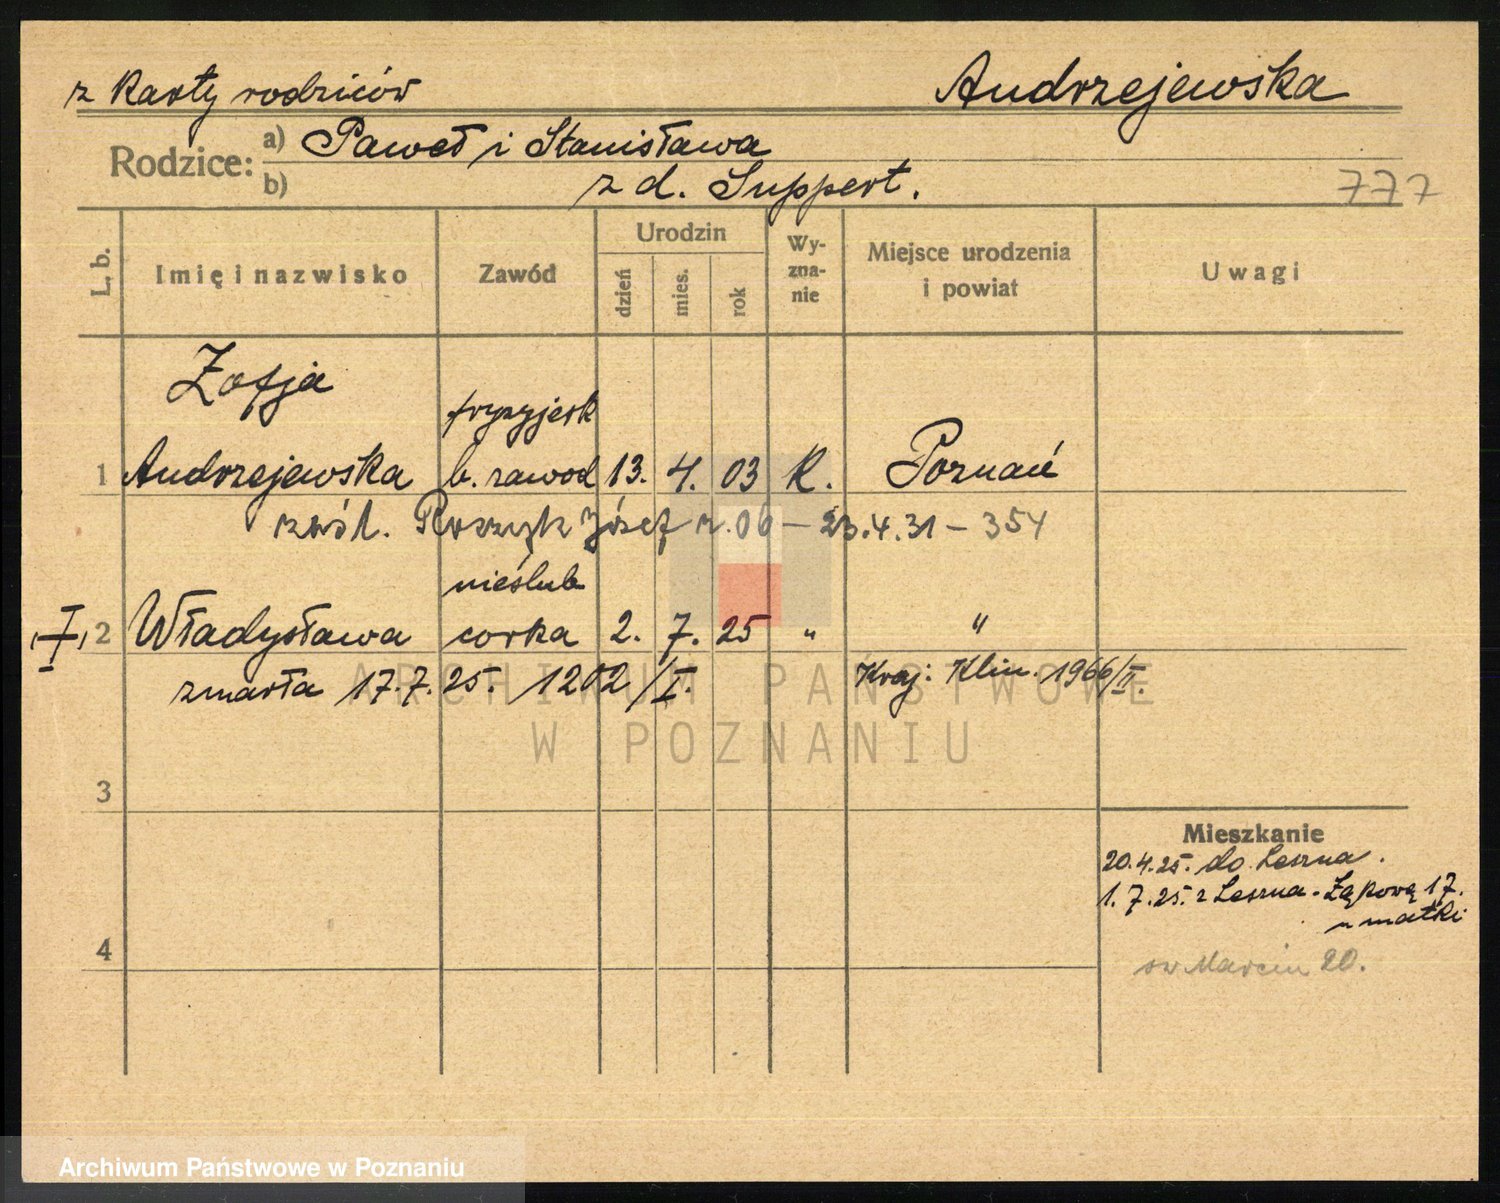 z karty rodziców Andrzejewska
Rodzice: a) Paweł i Stanisława
b) z d. Suppert.
777
L. b. Imię i nazwisko Zawód Urodzin dzień mies. rok Wy-zna-nie Miejsce urodzenia i powiat Uwagi
Zofja
fryzyjerk
1 Andrzejewska b. zawod 13. 4. 03 K. Poznań
zaśl. Roszyk Józef r. 06 – 23.4.31 – 354
nieślub
I 2 Władysława corka 2. 7. 25 " "
zmarła 17.7.25. 1202/I. Kraj. Klin. 1966/II.
ARCHIWUM PAŃSTWOWE
W POZNANIU
3
Mieszkanie
20.4.25. do Leszna.
1.7.25. z Leszna - Łąkowa 17.
u matki
4
św Marcin 20.
Archiwum Państwowe w Poznaniu